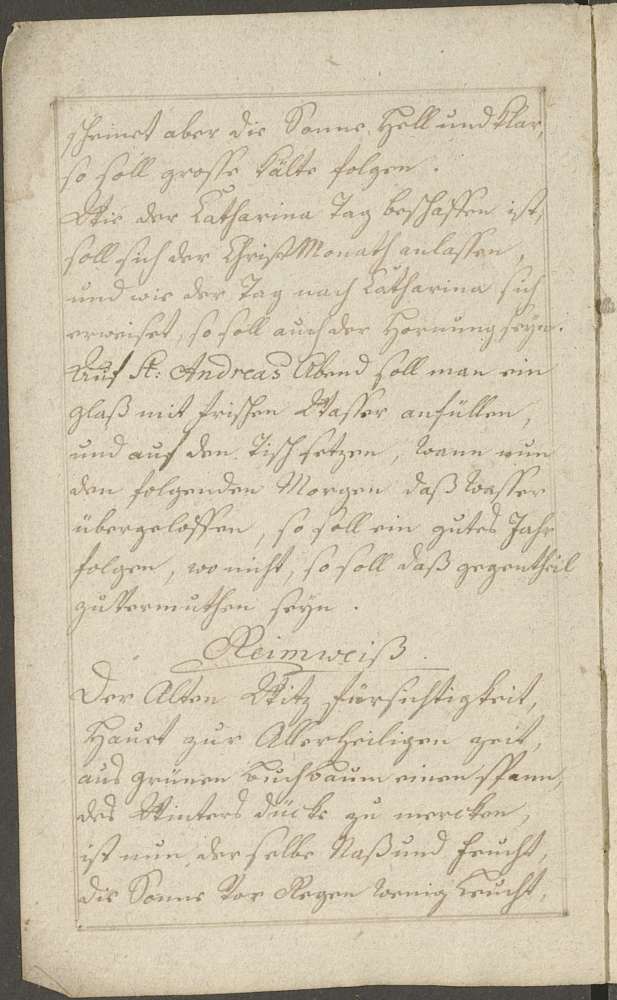 scheinet aber die Sonne, Hell und klar,
so soll grosse kälte folgen.
Wie der Catharina Tag beschaffen ist,
soll sich der Christ Monath anlassen,
und wie der Tag nach Catharina sich
erweiset, so soll auch der Hornung seyn.
Auf St: Andreas Abend soll man ein
glaß mit frischen Wasser anfüllen,
und auf den Tisch setzen, wann nun
den folgenden Morgen daß wasser
übergeloffen, so soll ein gutes Jahr
folgen, wo nicht, so soll daß gegentheil
zu vermuthen seyn.
Reimweiß.
Der Alten Witz fürsichtigkeit,
Hauet zur Allerheiligen zeit,
aus grünen buchbaum einen spann,
des Winters dücke zu mercken,
ist nun derselbe Naß und feucht,
die Sonne vor Regen wenig leucht,